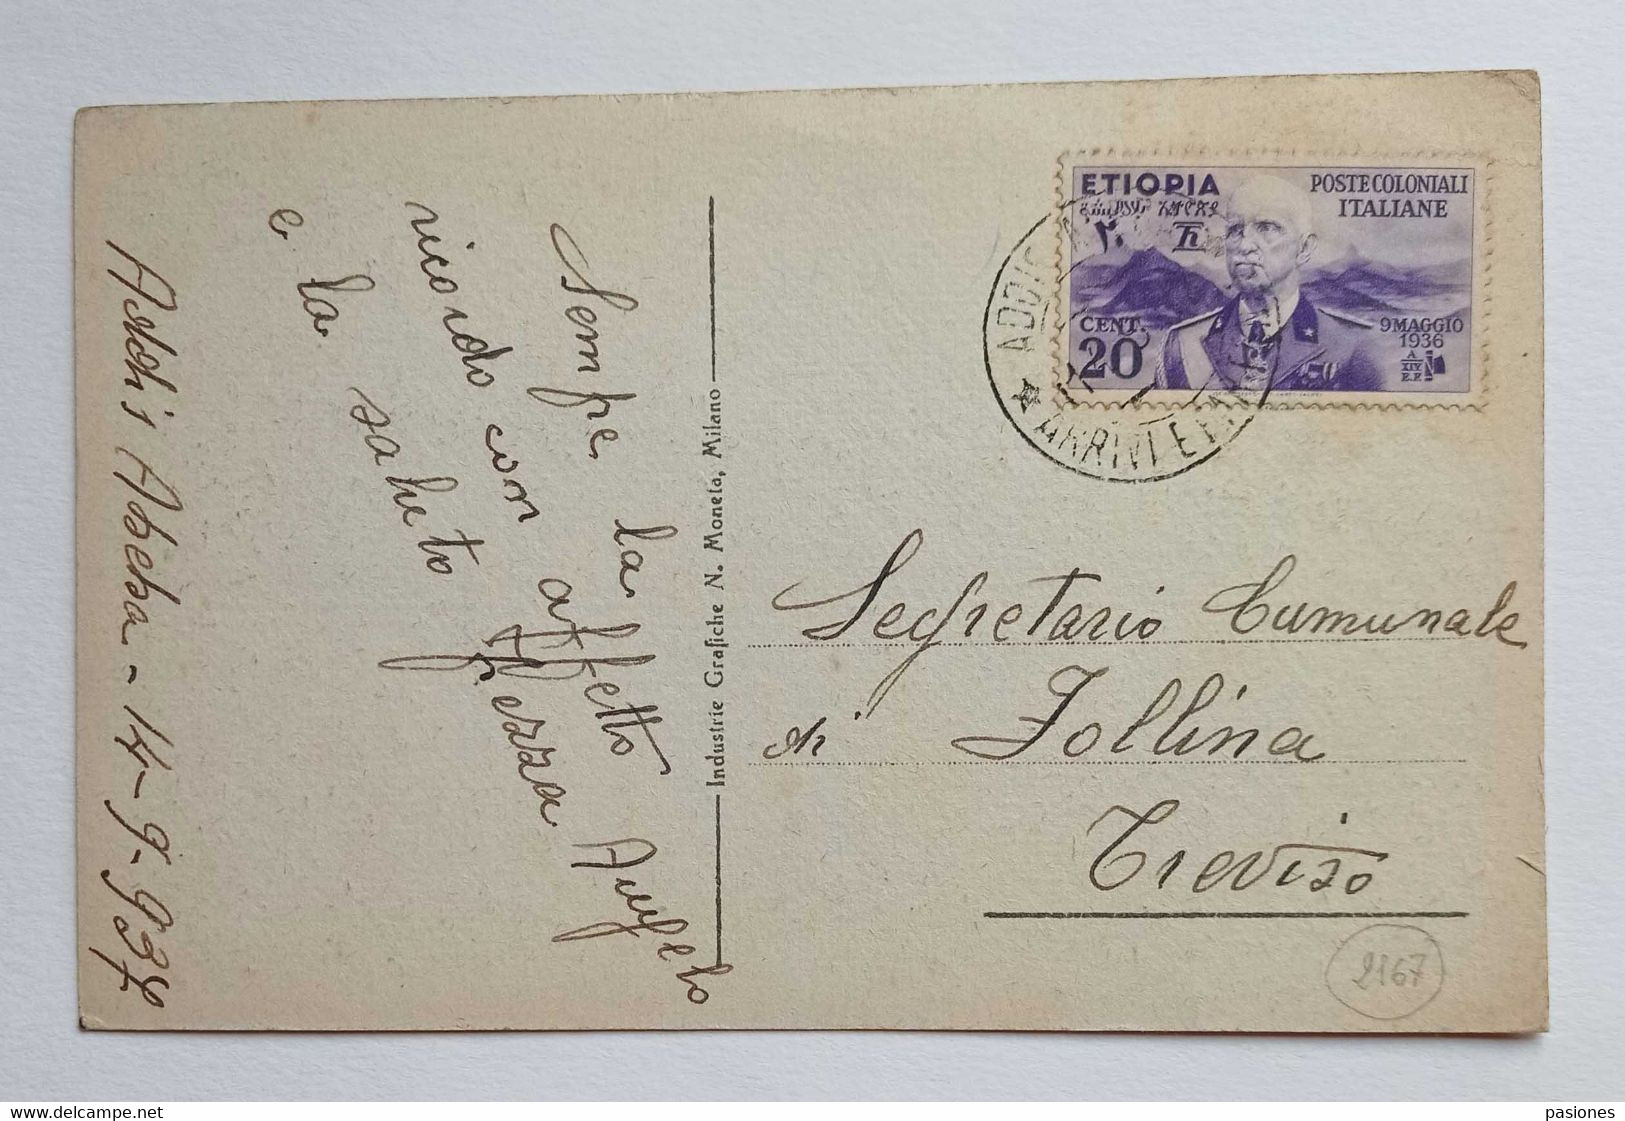 Addis Abeba - 14-9-937
Sempre la
ricordo con affetto
e la saluto
Angelo
Industrie Grafiche N. Moneta, Milano
ETIOPIA
POSTE COLONIALI
ITALIANE
CENT.
20
9 MAGGIO
1936
A
XIV
E.F.
ADDIS
ARRIVI E
Segretario Comunale
di Follina
Treviso
2167
delcampe.net
pasiones